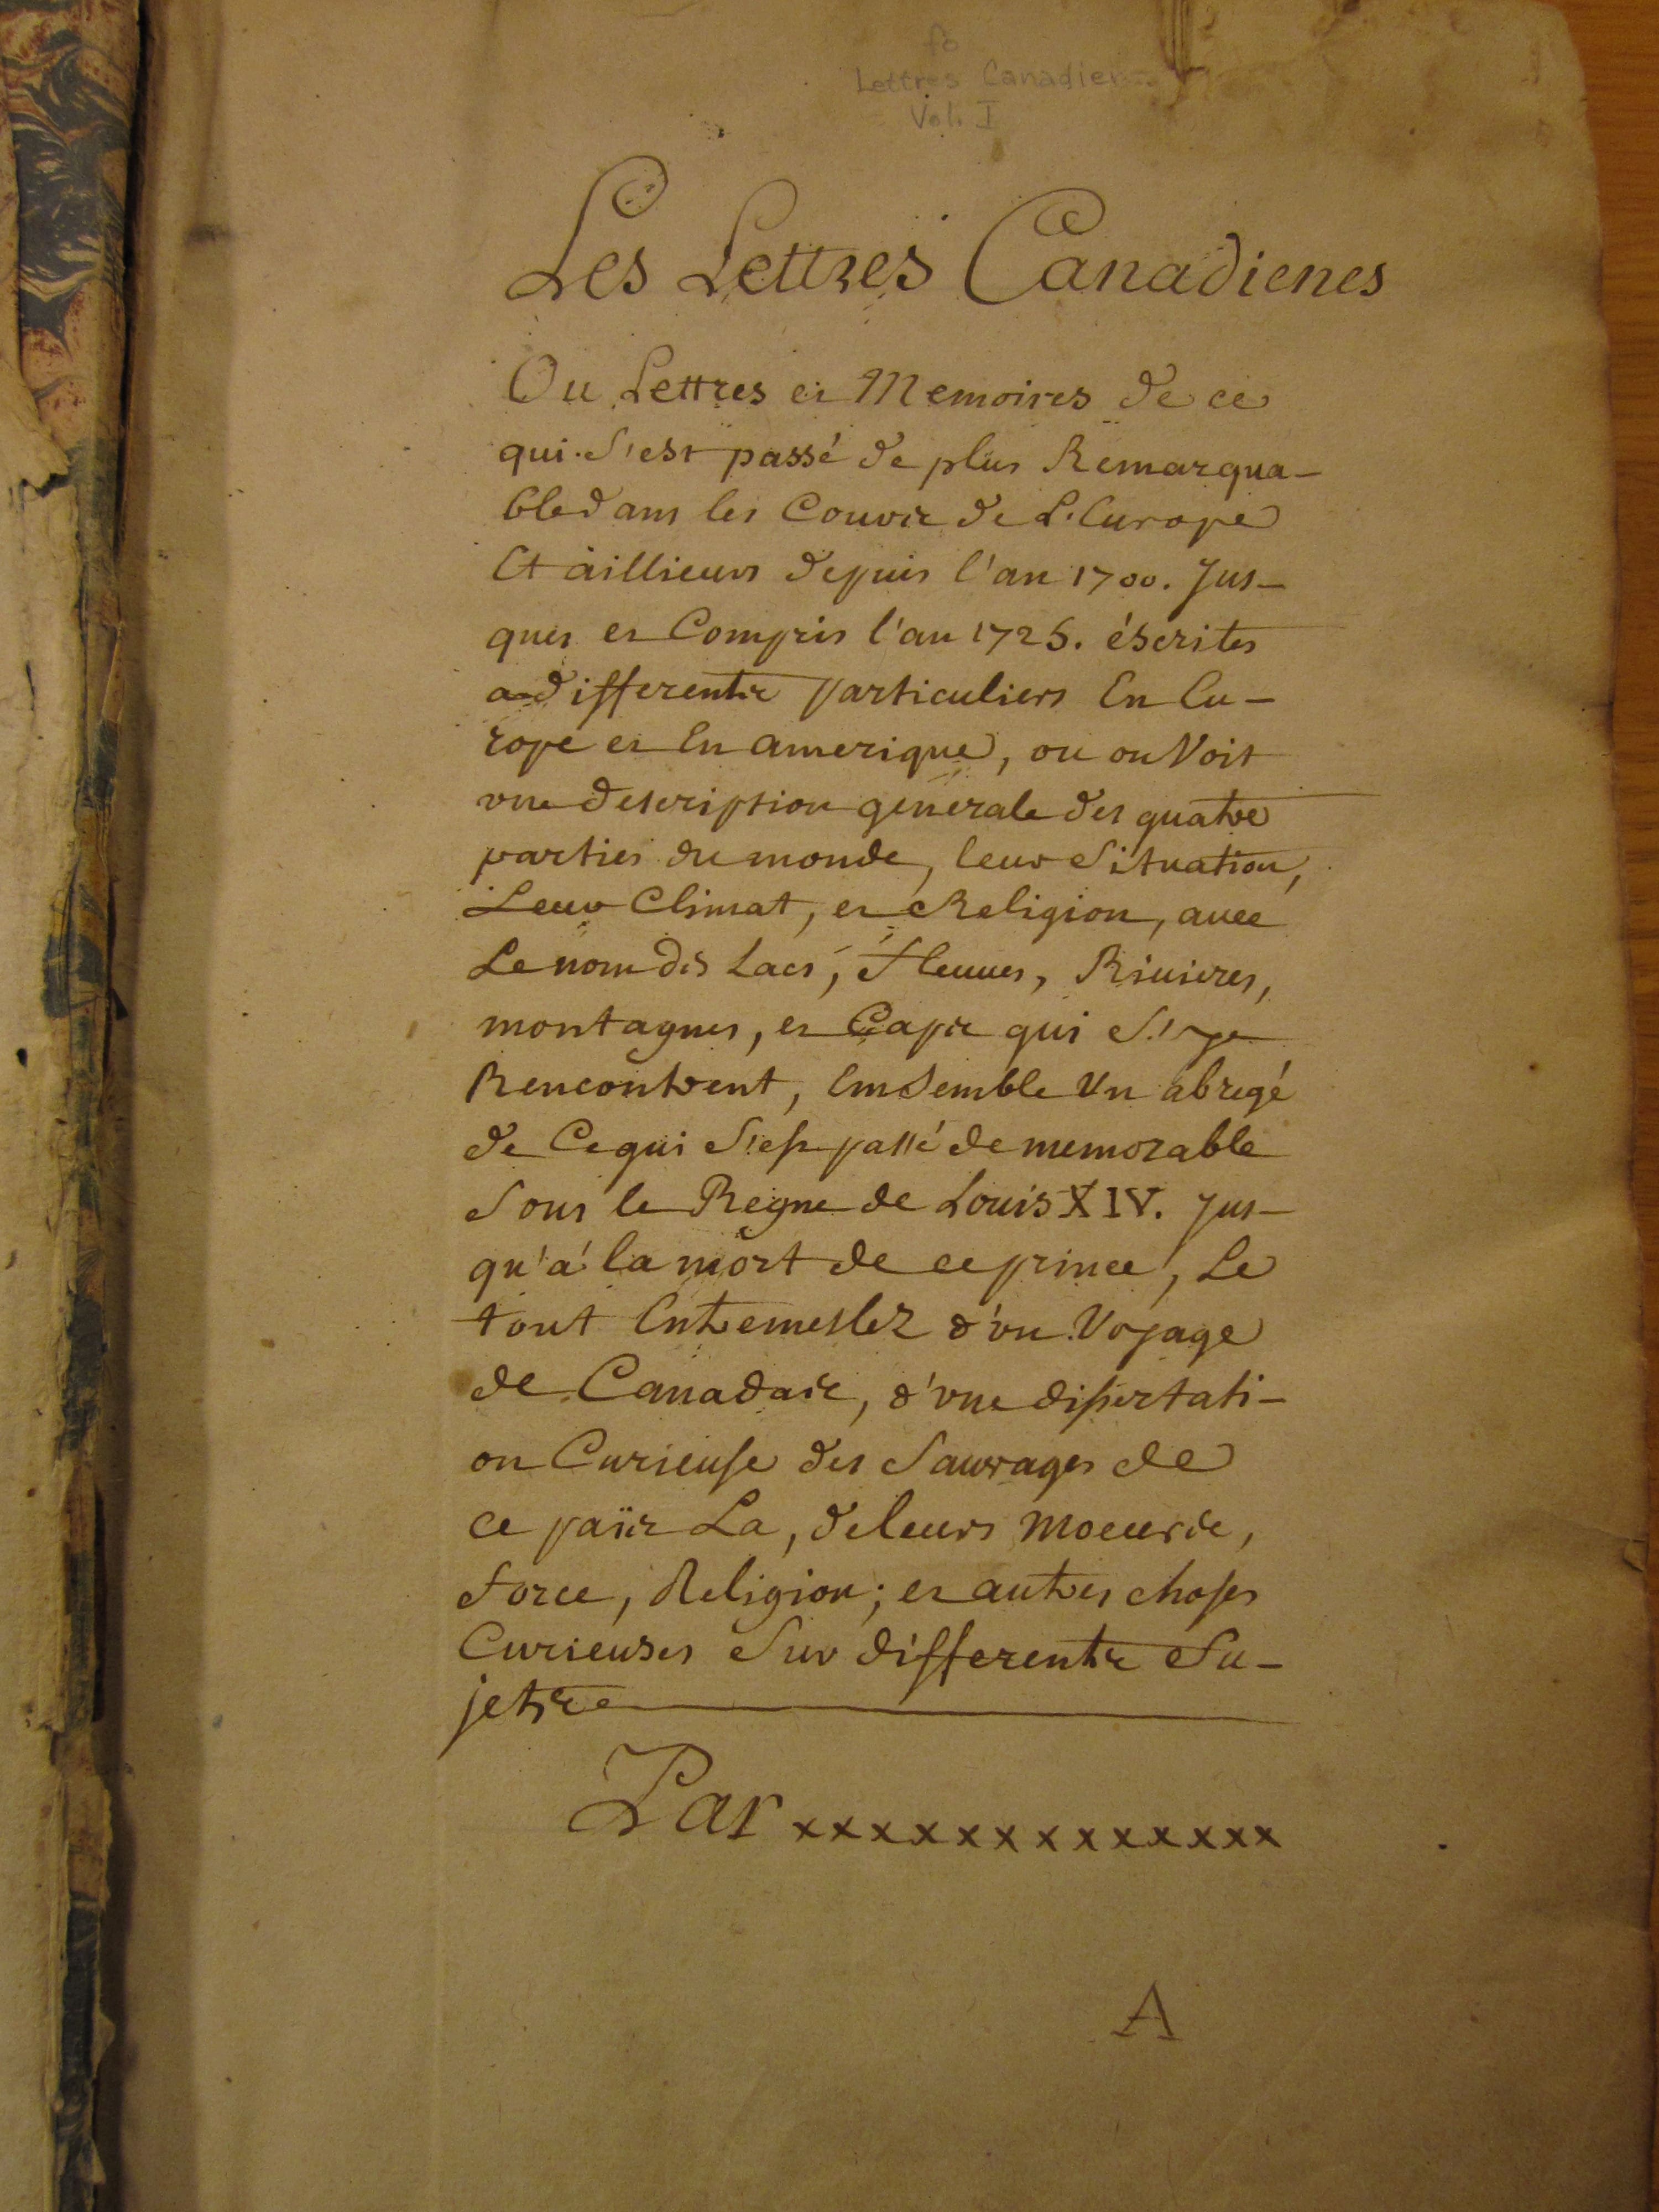 fo
Lettres Canadien
Vol. I
Les Lettres Canadienes
Ou Lettres et Memoires de ce
qui s'est passé de plus Remarqua-
ble dans les Cours de L'Europe
Et aillieurs depuis l'an 1700. Jus-
ques et Compris l'an 1725. éscrites
a differents particuliers En Eu-
rope et En amerique, ou on Voit
vne description generale des quatre
parties du monde, leur Situation,
Leur Climat, et Religion, auec
Le nom des Lacs, fleuues, Riuieres,
montagnes, et Caps qui S'y
Rencontrent, EmSemble Un abregé
de Ce qui S'est passé de memorable
Sous le Regne de Louis XIV. Jus-
qu'a la mort de ce prince, Le
tout Entremeslez d'vn Voyage
de Canadas, d'vne dissertati-
on Curieuse des Sauvages de
ce païs La, de leurs moeurs,
force, Religion; et autres choses
Curieuses Sur differents Su-
jets
Par xxxxxxxxxxxxx
A